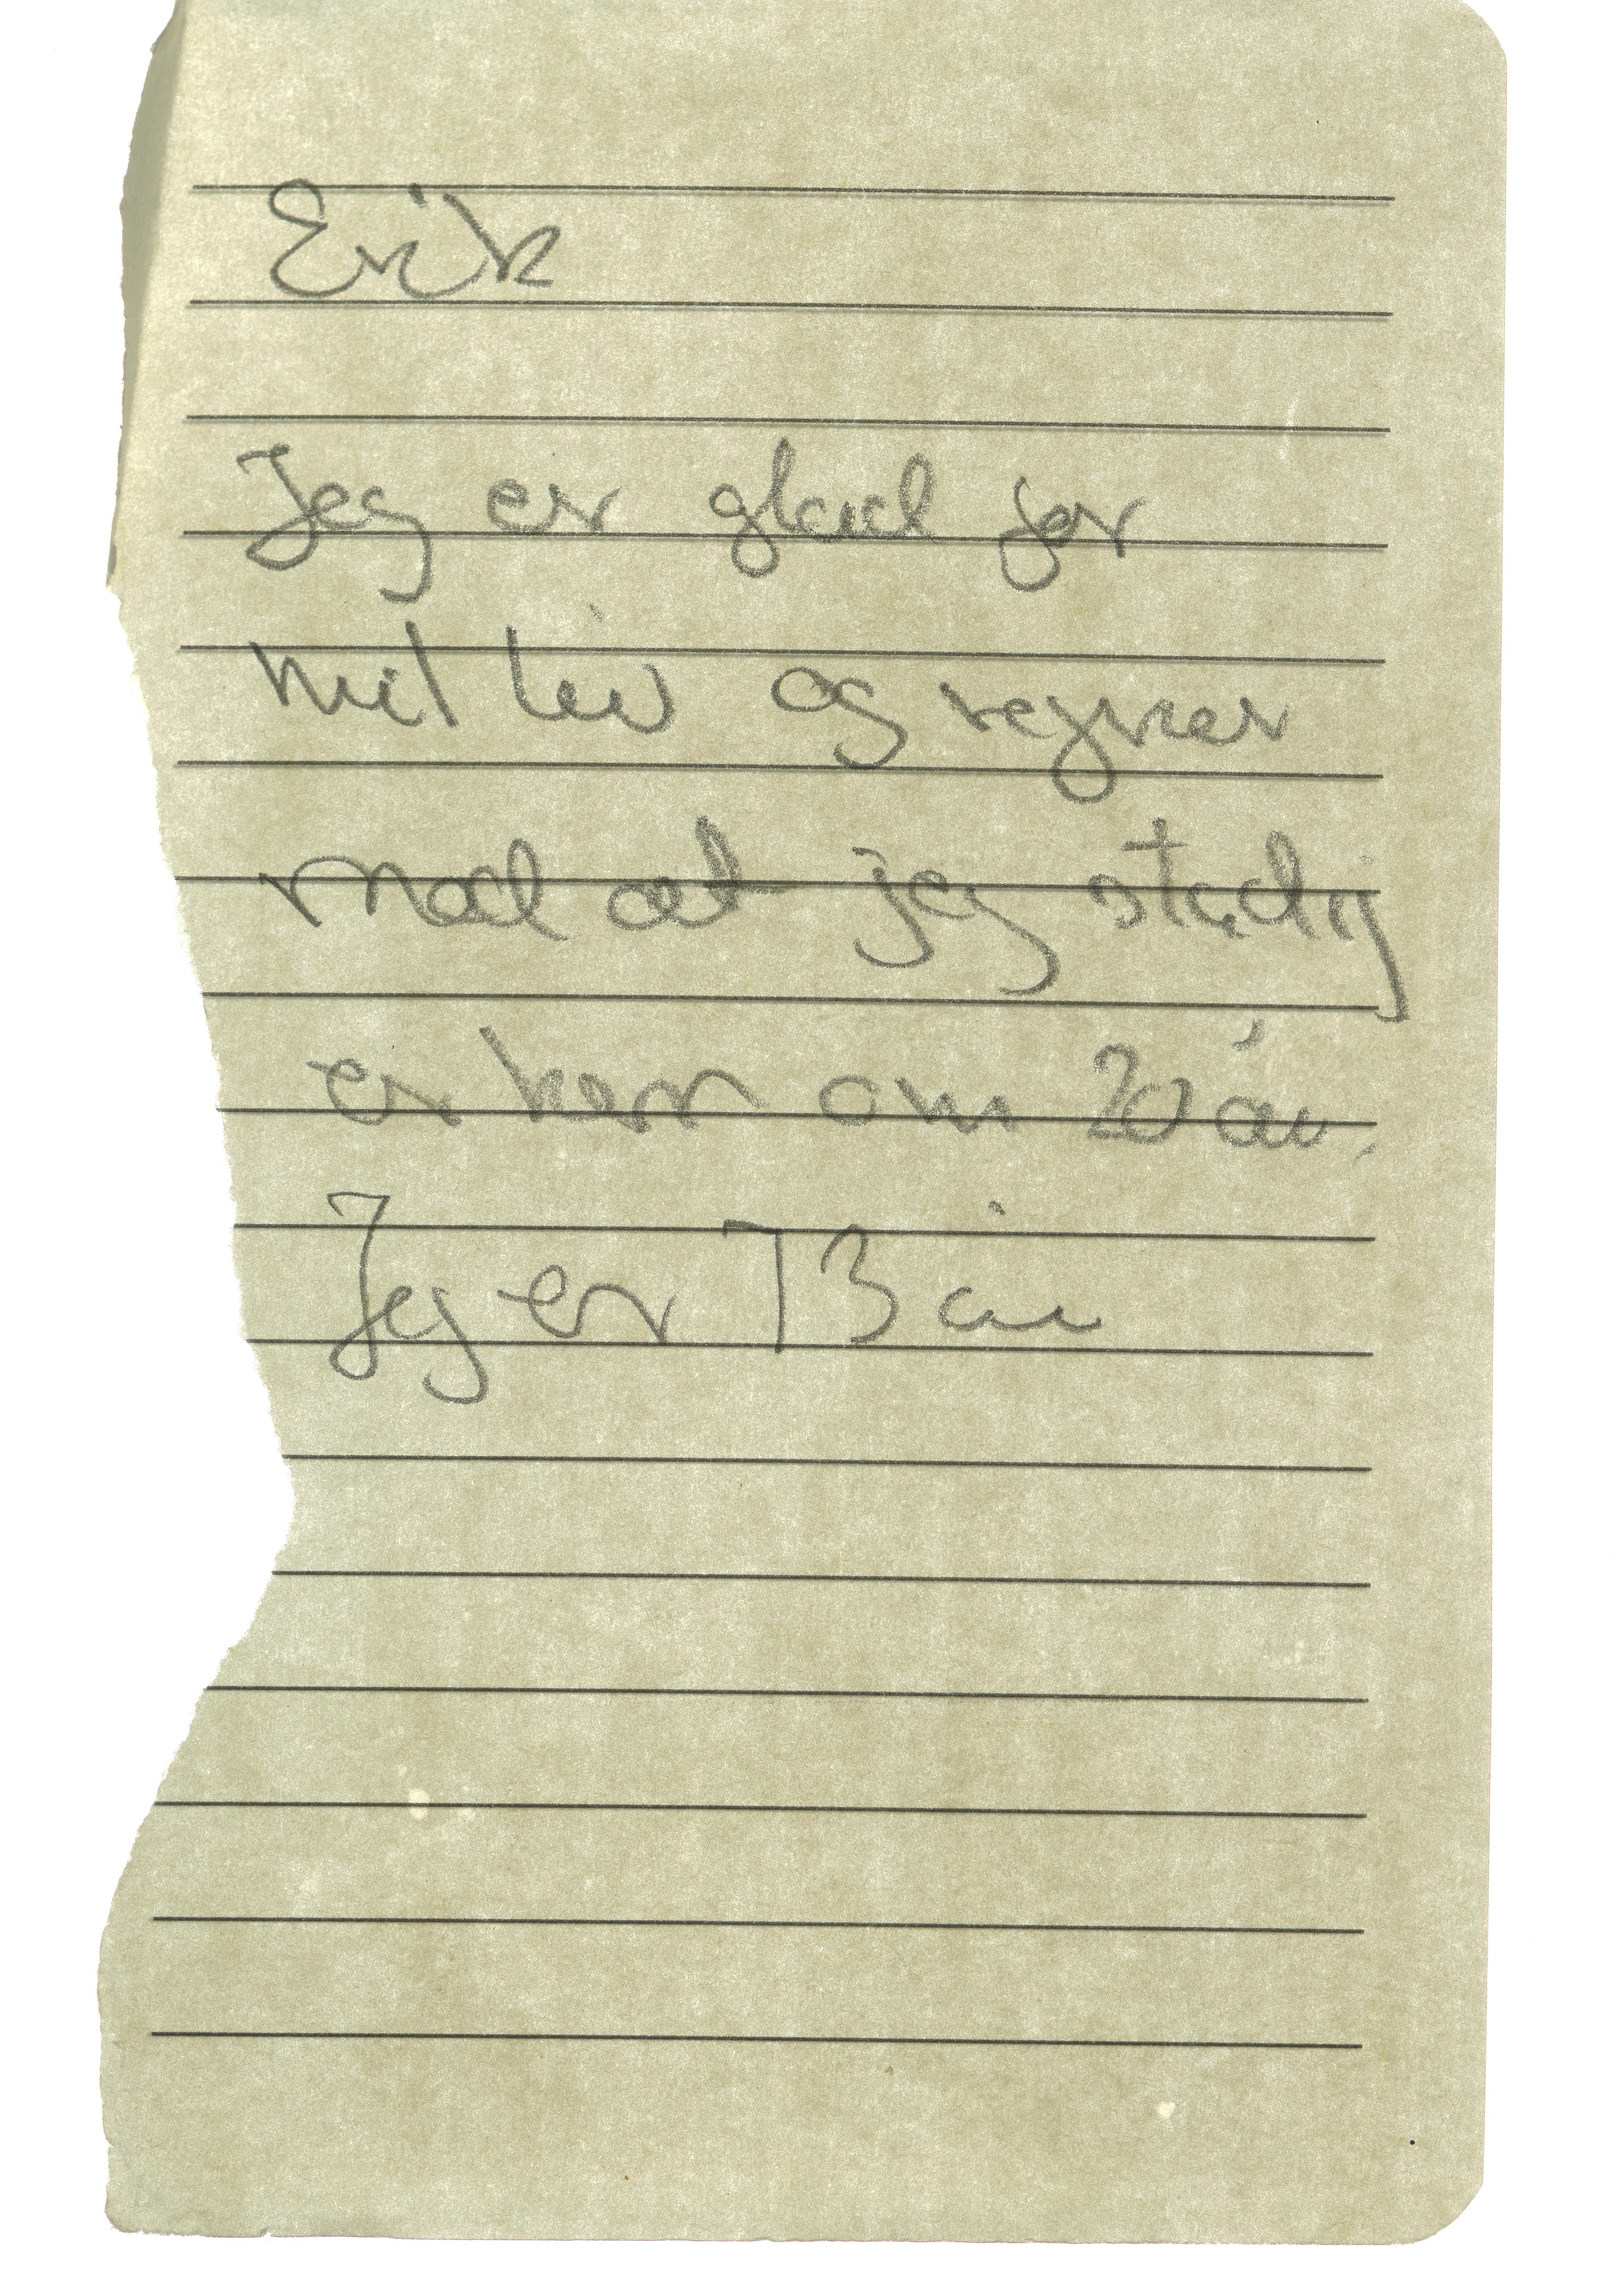 Erik
Jeg er glad for
mit liv og regner
med at jeg stadig
er her om 20 år.
Jeg er 73 år